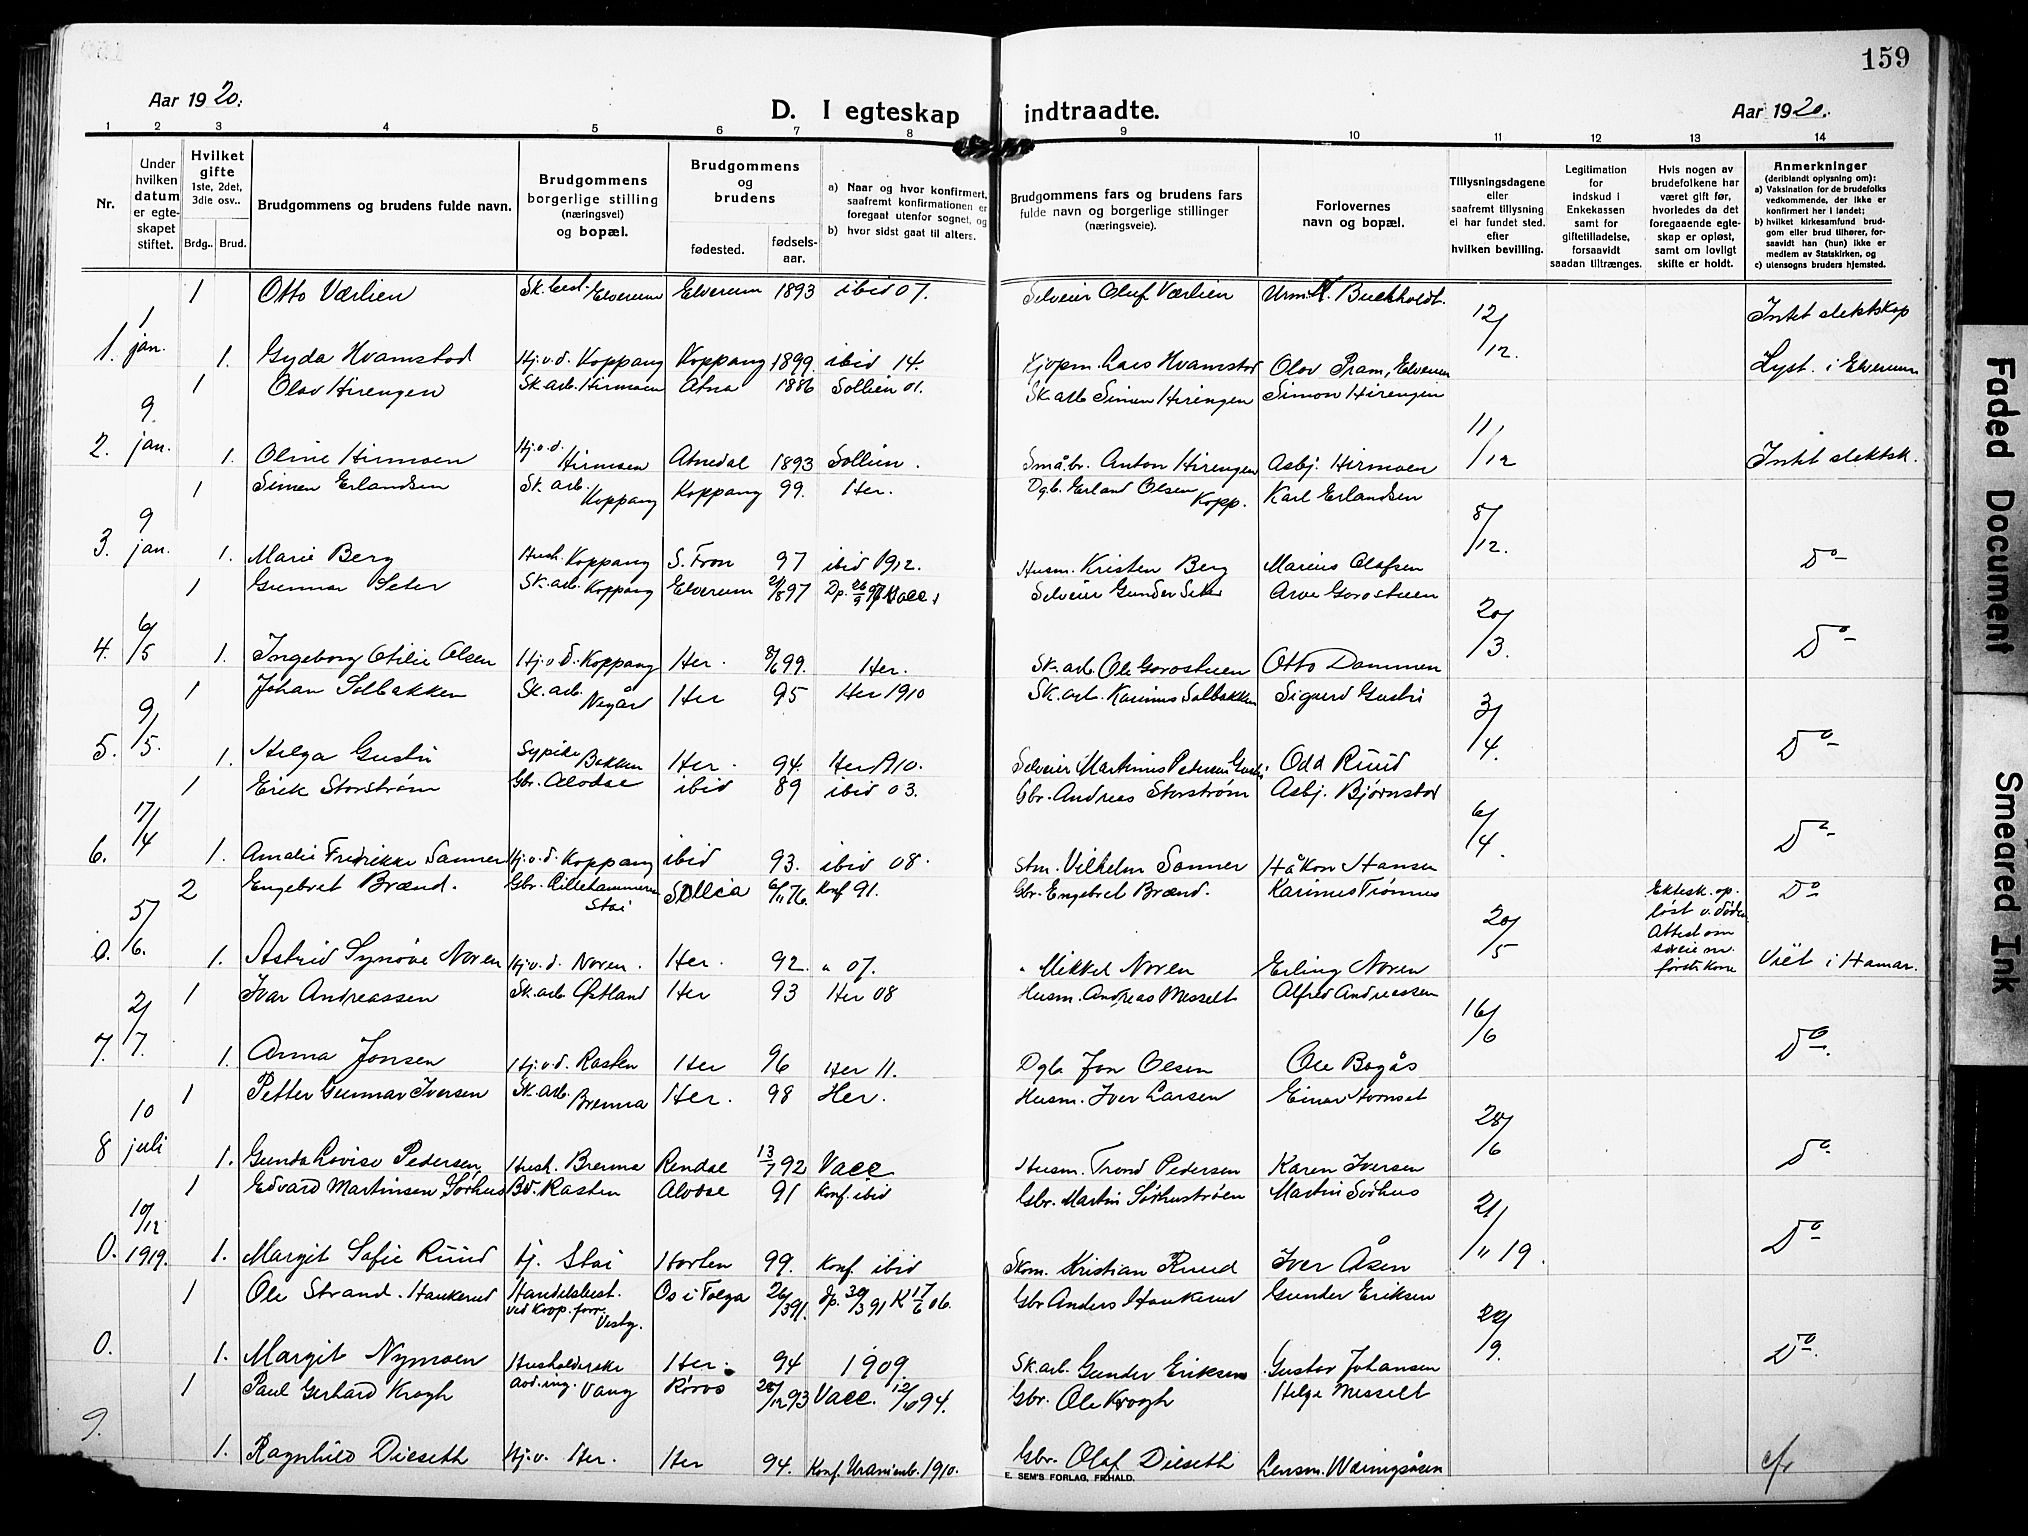 159
Aar 1920.
D. I egteskap indtraadte.
Aar 1920.
1 2 3 4 5 6 7 8 9 10 11 12 13 14
Nr.
Under hvilken datum er egteskapet stiftet.
Hvilket gifte 1ste, 2det, 3die osv..
Brdg.. Brud.
Brudgommens og brudens fulde navn.
Brudgommens borgerlige stilling (næringsvei) og bopæl.
Brudgommens og brudens
fødested. fødsels-aar.
a) Naar og hvor konfirmert, saafremt konfirmationen er foregaat utenfor sognet, og
b) hvor sidst gaat til alters.
Brudgommens fars og brudens fars fulde navn og borgerlige stillinger (næringsveie).
Forlovernes navn og bopæl.
Tillysningsdagene eller saafremt tillysning ei har fundet sted, efter hvilken bevilling.
Legitimation for indskud i Enkekassen samt for giftetilladelse, forsaavidt saadan tiltrænges.
Hvis nogen av brudefolkene har været gift før, hvorledes da det foregaaende egteskap er opløst, samt om lovligt skifte er holdt.
Anmerkninger (deriblandt oplysning om):
a) Vaksination for de brudefolks vedkommende, der ikke er konfirmert her i landet;
b) hvilket kirkesamfund brudgom eller brud tilhører, forsaavidt han (hun) ikke er medlem av Statskirken, og
c) utensogns bruders hjemsted.
1 Otto Værlien Elverum Elverum 1893 ibid 07. Selveier Oluf Værlien Buchholdt.
1. 1 jan. 12/12. Intet slektskap
1. Gyda Hvamstad Hj.v.d. Koppang Koppang 1899. ibid 14. Kjøpm. Lars Hvamstad Olov Pram, Elverum Lyst. i Elverum
1 Olav Hirengen Sk.arb. Hirmoen Atna 1886 Sollien 01. Sk.arb Simen Hirengen Simon Hirengen
2. 9. jan. 11/12
1. Oline Hirmoen Hj.v.d. Hirmoen Atnedal 1893 Sollien. Småbr. Anton Hirengen Asbj. Hirmoen Intet slektsk.
1 Simen Erlandsen Sk.arb. Koppang Koppang 99. Her. Dgb. Erland Olsen Kopp. Karl Erlandsen
3. 9 jan. 8/12.
1. Marie Berg Hush. Koppang S. Fron 97 ibid 1912. Husm. Kristen Berg Marius Olafsen Do
1 Gunnar Seter Sk.arb. Koppang Elverum 97 Selveier Gunder Seter Arve Gorostuen
4. 6/5 20/3. Do
1. Ingeborg Otilie Olsen Hj.v.d. Koppang Her. 8/6 99. Her. Sk.arb. Ole Gorostuen Otto Dammen
1 Johan Solbakken Sk.arb. Negård Her 95 Her 1910 Sk.arb. Karinius Solbakken Sigurd Gustri
5. 9/5. 3/4. Do
1. Helga Gustri Sypike Bakken Her. 94. Her 1910. Selveier Martinus Pedersen Odd Ruud
1 Erik Storstrøm Gbr. Alvdal ibid 89 ibid 03. Gbr. Andreas Storstrøm Asbj. Bjørnstad
6. 17/4 6/4. Do
1. Amalie Fredrikke Sanner Hj.v.d. Koppang ibid 93. ibid 08. Stm. Vilhelm Sanner Håkon Hansen
2 Engebret Brænd. Gbr. Lillehammeren Stai Sollia 6/11 76. Konf 91. Gbr. Engebret Brænd. Karinus Trønnes Ektesk. opløst v. døden Do
0. 5/6. 20/5 Attest om
1. Astrid Synøve Noren Hj.v.d. Noren. Her. 92. " 07. " Mikkel Noren Erling Noren første kone Viet i Hamar.
1 Ivar Andreassen Sk.arb Østland Her 93 Her 08 Husm. Andreas Messelt Alfred Andreassen
7. 2/7. 16/6 Do.
1. Anna Jonsen Hj.v.d. Rasten Her 96 Her 11. Dgb. Jon Olsen Ole Bogås
1 Petter Gunnar Iversen Sk.arb. Brenna Her. 98 Her. Husm. Iver Larsen Einar Hornset
8 10 juli 28/6 Do.
1. Gunda Lovise Pedersen Hush. Brenna Rendal 13/7 92 Vacc. Husm. Trond Pedersen Karen Iversen
1 Edvard Martinsen Sørhus Rasten Alvdal 91 Konf. ibid Gbr. Martin Sørhustrøen Martin Sørhus
0. 10/12 1919. 21/11 19. Do
1. Margit Sofie Ruud Hj. Stai Horten 99. Konf. ibid Skom. Kristian Ruud Iver Åsen
1 Ole Strand. Haukerud Handelsbest. ved Koop. forr. Vestg. Os i Tolga 26/3 91. Dp. 30/3 91 K 17/6 06. Gbr Anders Haukerud Gunder Eriksen
0. 29/9. Do.
1. Margit Nymoen Husholderske Her. 94 1909. Sk.arb. Gunder Eriksen Gustav Johansen
1 Paul Gerhard Krogh Vang Røros 28/12 93 Vacc. 12/10 94. Gbr. Ole Krogh Helge Messelt
9.
1. Ragnhild Dieseth Hj.v. Her. Her 94. Konf. Uranienb. 1910. Gbr. Olaf Dieseth Lensm. Wæringsåsen cfr
E. SEM'S FORLAG, FR.HALD.
Faded Document
Smeared Ink